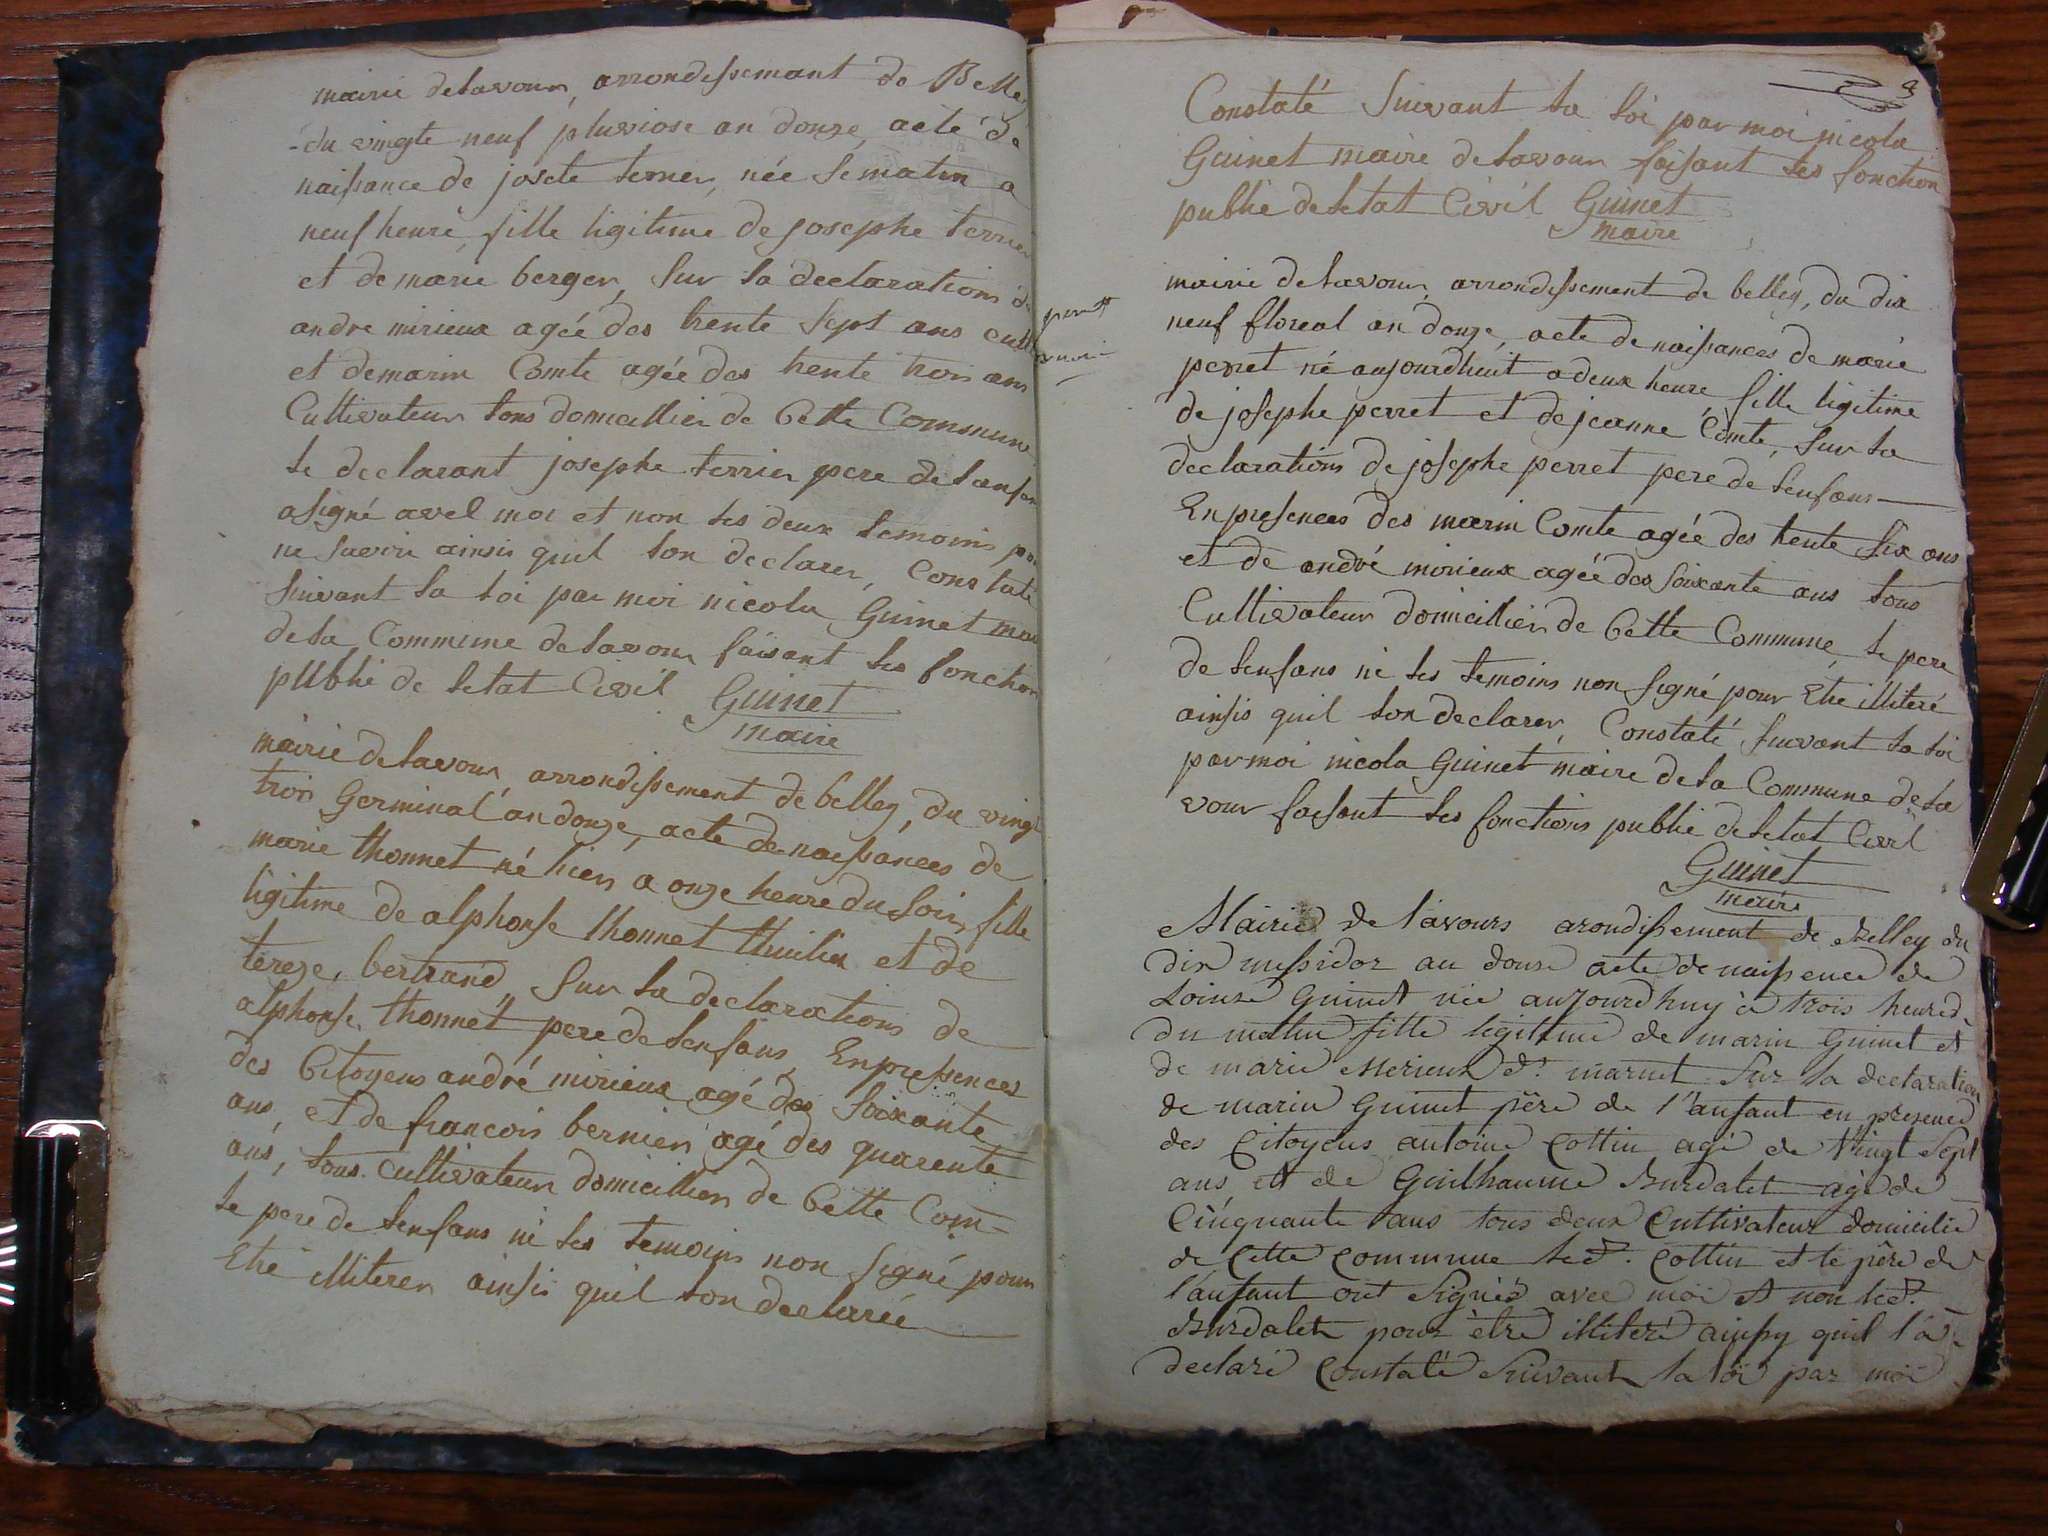 mairie de Lavour, arrondissemant de Belley
du vingte neuf pluviose an douze, acte de
naissance de josete terrier, née le matin a
neuf heure, fille ligitime de josephe terrier
et de marie berger, sur la declarations de
andre mirieux agée des trente sept ans cult
et de marin Comte agée des trente trois ans
Cultivateur tous domicillier de Cette Commune
le declarant josephe terrier pere de lanfan
a signé avel moi et non les deux temoins pour
ne savoir ainsis quil lon declarer, Constaté
suivant la loi par moi nicola Guinet maire
de la Commune de lavour faisant les fonction
publié de letat Civil Guinet
maire
mairie de Lavour, arrondissement de belley, du vingt
trois Germinal an douze, acte de naissances de
marie thonnet né hier a onze heure du soir, fille
ligitime de alphonse thonnet thuilier et de
tereze, bertrand, sur la declarations de
alphonse thonnet pere de lenfans, En pressences
des Citoyens andré mirieux agé des soixante
ans, et de francois bernier agé des quarente
ans, tous cultivateur domicillier de Cette Com-
le pere de lenfans ni les temoins non signé pour
Etre illiterer ainsis quil lon declarée
Constaté suivant la loi par moi nicola
Guinet maire de lavour faisant les fonction
publié de letat Civil Guinet
maire
mairie de lavour, arrondissement de belley, du dix
neuf floreal an douze, acte de naissances de marie
perret né aujourdhuit a deux heure fille ligitime
de josephe perret et de jeanne Comte, sur la
declarations de josephe perret pere de lenfans
En presences des marin Comte agée des trente six ans
et de andré mirieux agée des soixante ans tous
Cultivateur domicillier de Cette Commune, le pere
de lenfans ni les temoins non signé pour Etre illiteré
ainsis quil lon declarer, Constaté suivant la loi
par moi nicola Guinet maire de la Commune de la
vour faisant les fonctions publié de letat Civil
Guinet
maire
Mairie de Lavours arondissement de Belley du
dix messidor an douze acte de naissence de
Louise Guinet née aujourdhuy à trois heured
du matin fille legitime de marin Guinet et
de marie Merieux dt. marnet sur la declaration
de marin Guinet père de l'anfant en presence
des Citoyens antoine Cottin agé de Vingt Sept
ans et de Guilhaume Burdalet agé de
Cinquante ans tous deux Cultivateur domicilié
de Cette Commune led. Cottin et le père de
l'anfant ont Signés avec moi et non led.
Burdalet pour être illiteré ainsy quil l'a
declaré Constaté Suivant la loi par moi